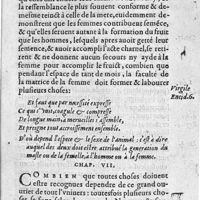 la ressemblance le plus souuent conforme & de-
mesme retirāt à celle de la mere, euidemment de-
monstrent que les femmes contribuent semēce,
& qu'elles seruent autant à la formation du fruit
que les hommes, lesquels apres auoir getté leur
semence, & auoir accompli l'acte charnel, se retirent
& ne donnent aucun secours ny ayde à la
femme pour accomplir le fruict, combien que
pendant l'espace de tant de mois, la faculté de
la matrice de la femme doit former & labourer
plusieurs choses:
Virgile
Eneid. 6.
Et faut que par necessité expresse
Ce qui s'unit, engule & compresse
De longue main, à merueilles s'assemble,
Et preigne tout accroissement ensemble.
D'ou depend l'espece & le sexe de l'animal: c'est à dire
auquel des deux doit estre attribué la generation du
masle ou de la femelle, à l'homme ou à la femme.
CHAP. VII.
COMBIEN que toutes choses doiuent
estre recognues dependre de ce grand ou-
urier de tout l'vniuers: toutesfois plusieurs cho-